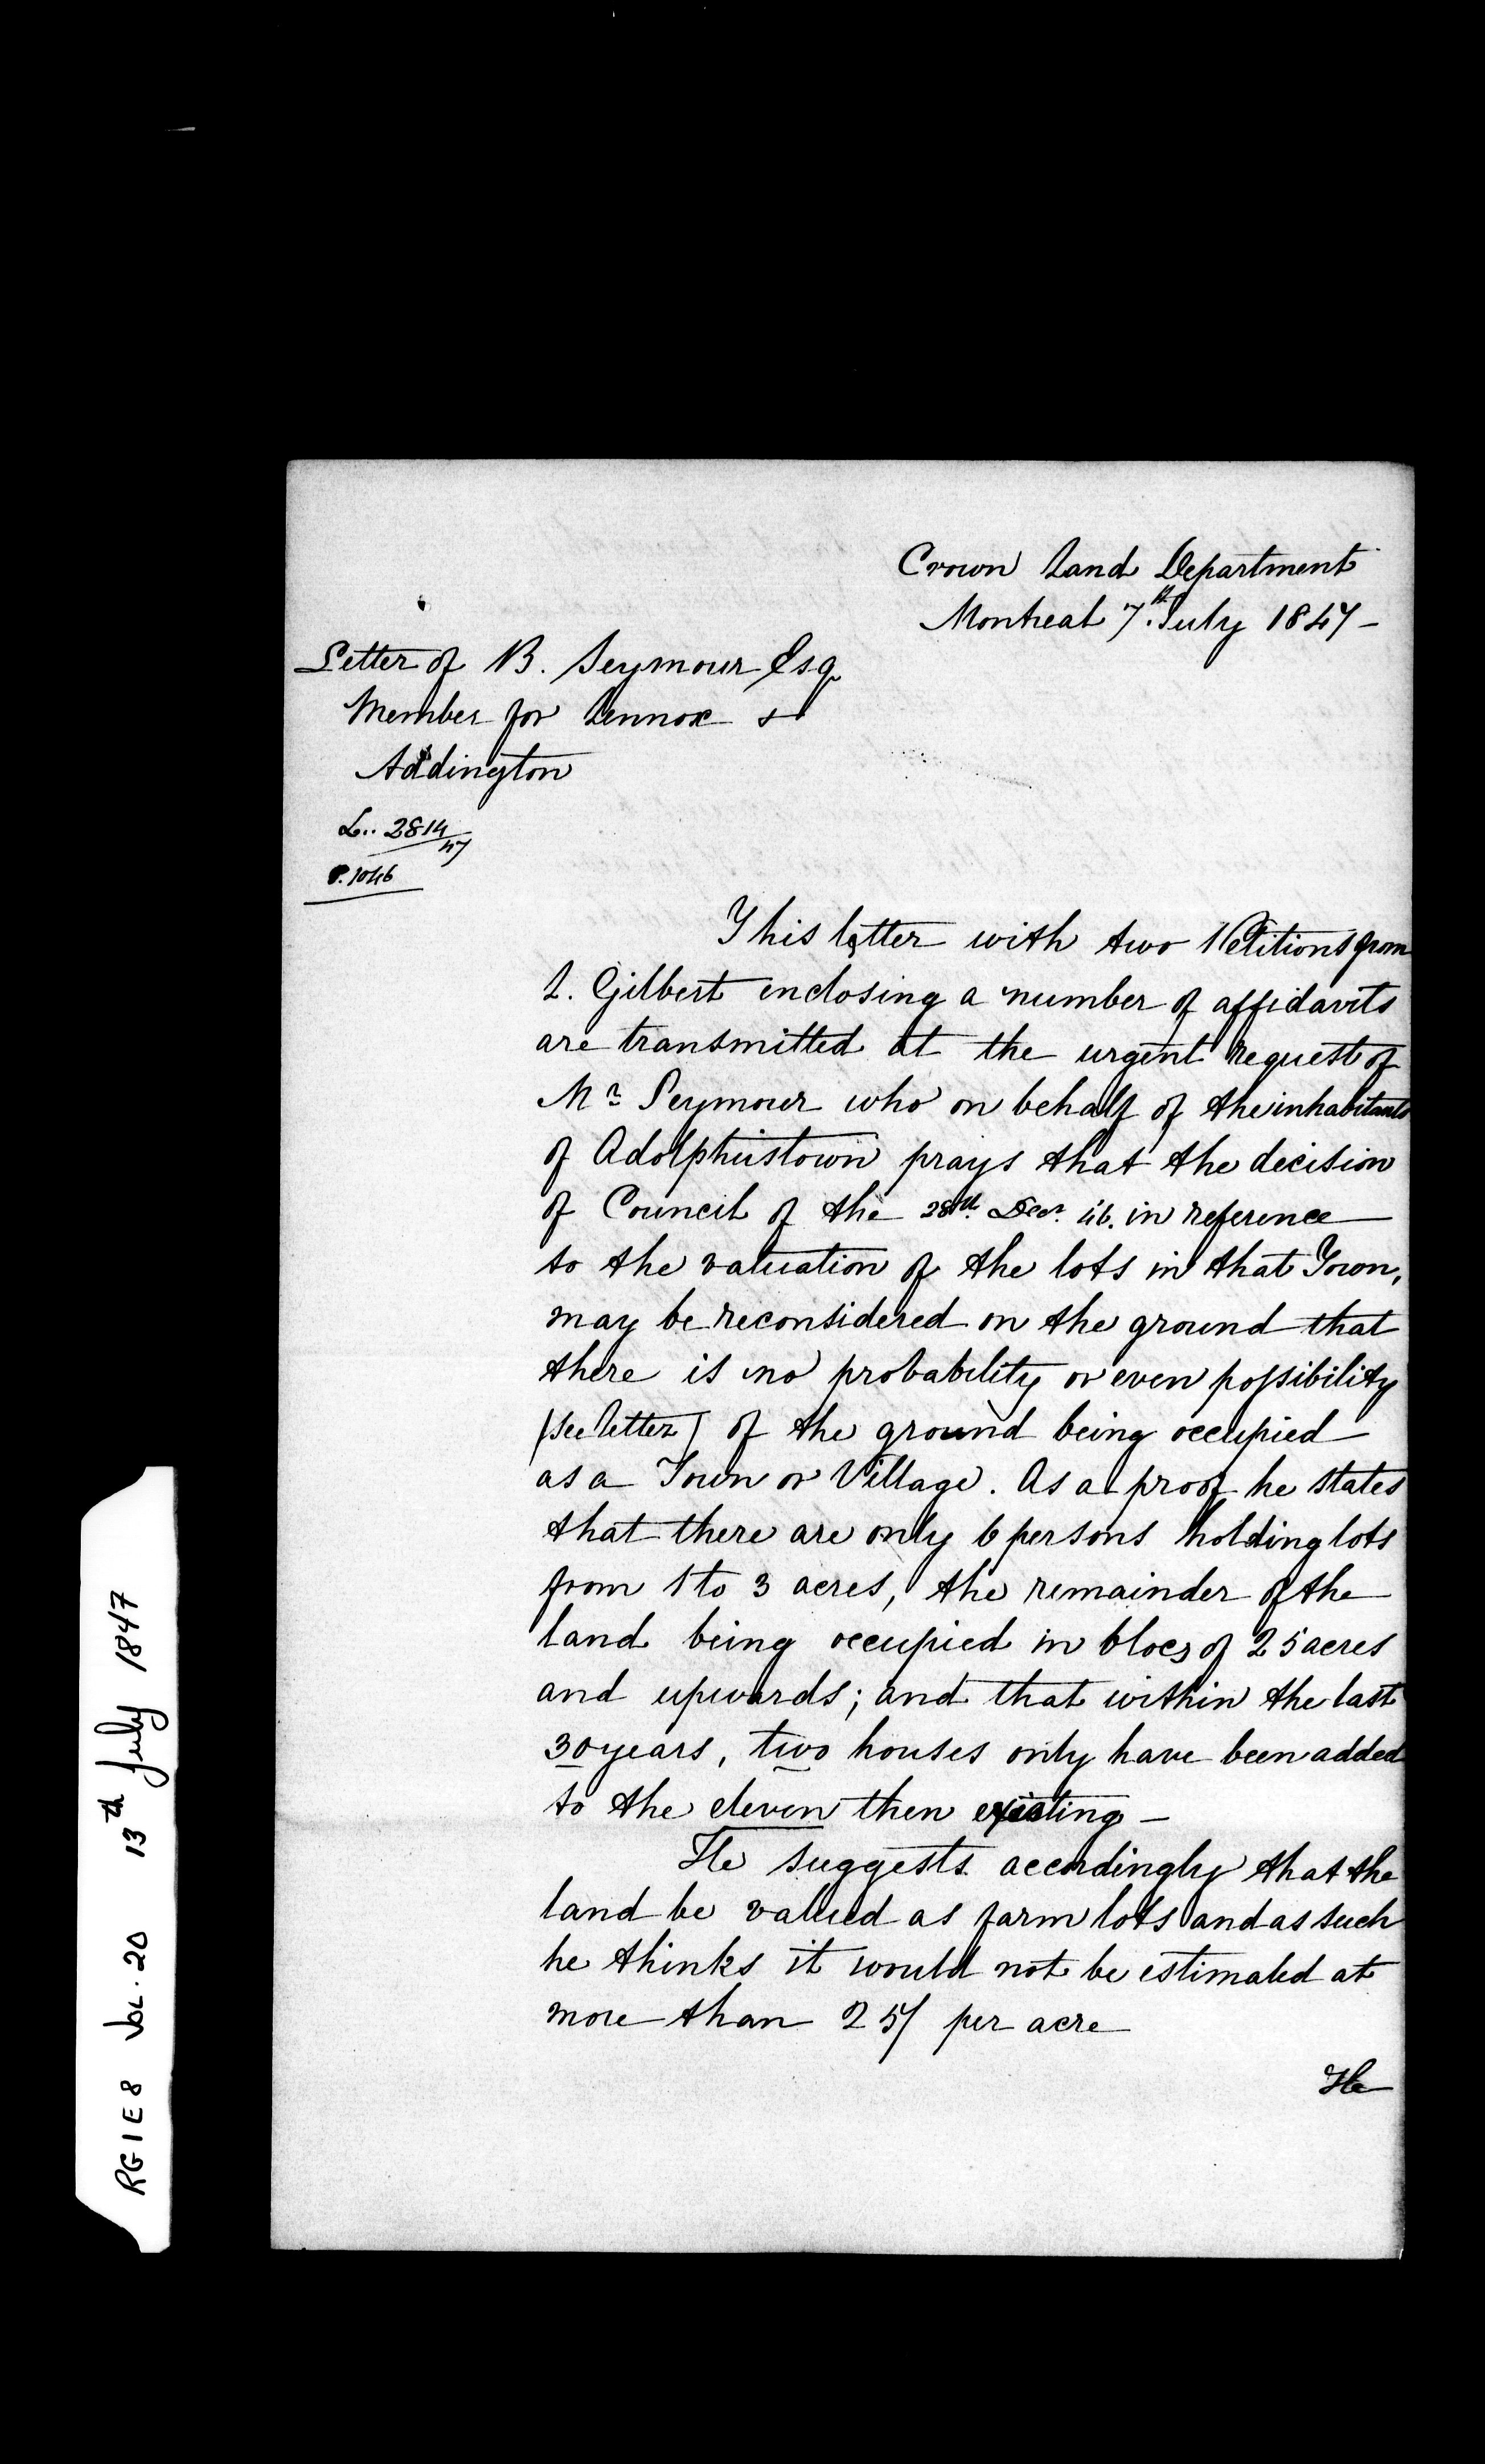 Crown Land Department
Montreal 7th July 1847 -
Letter of B. Seymour Esq
Member for Lennox &
Addington
L.. 2814/47
P. 1046
This letter with two Petitions from
L. Gilbert enclosing a number of affidavits
are transmitted at the urgent request of
Mr Seymour who on behalf of the inhabitants
of Adolphustown prays that the decision
of Council of the 28th Decr 46. in reference
to the valuation of the lots in that Town,
may be reconsidered on the ground that
there is no probability or even possibility
(see letter) of the ground being occupied
as a Town or Village. As a proof he states
that there are only 6 persons holding lots
from 1 to 3 acres, the remainder of the
land being occupied in blocs of 25 acres
and upwards; and that within the last
30 years, two houses only have been added
to the eleven then existing -
He suggests accordingly that the
land be valued as farm lots and as such
he thinks it would not be estimated at
more than 25/ per acre
He
RG 1 E 8 VOL. 20 13th July 1847